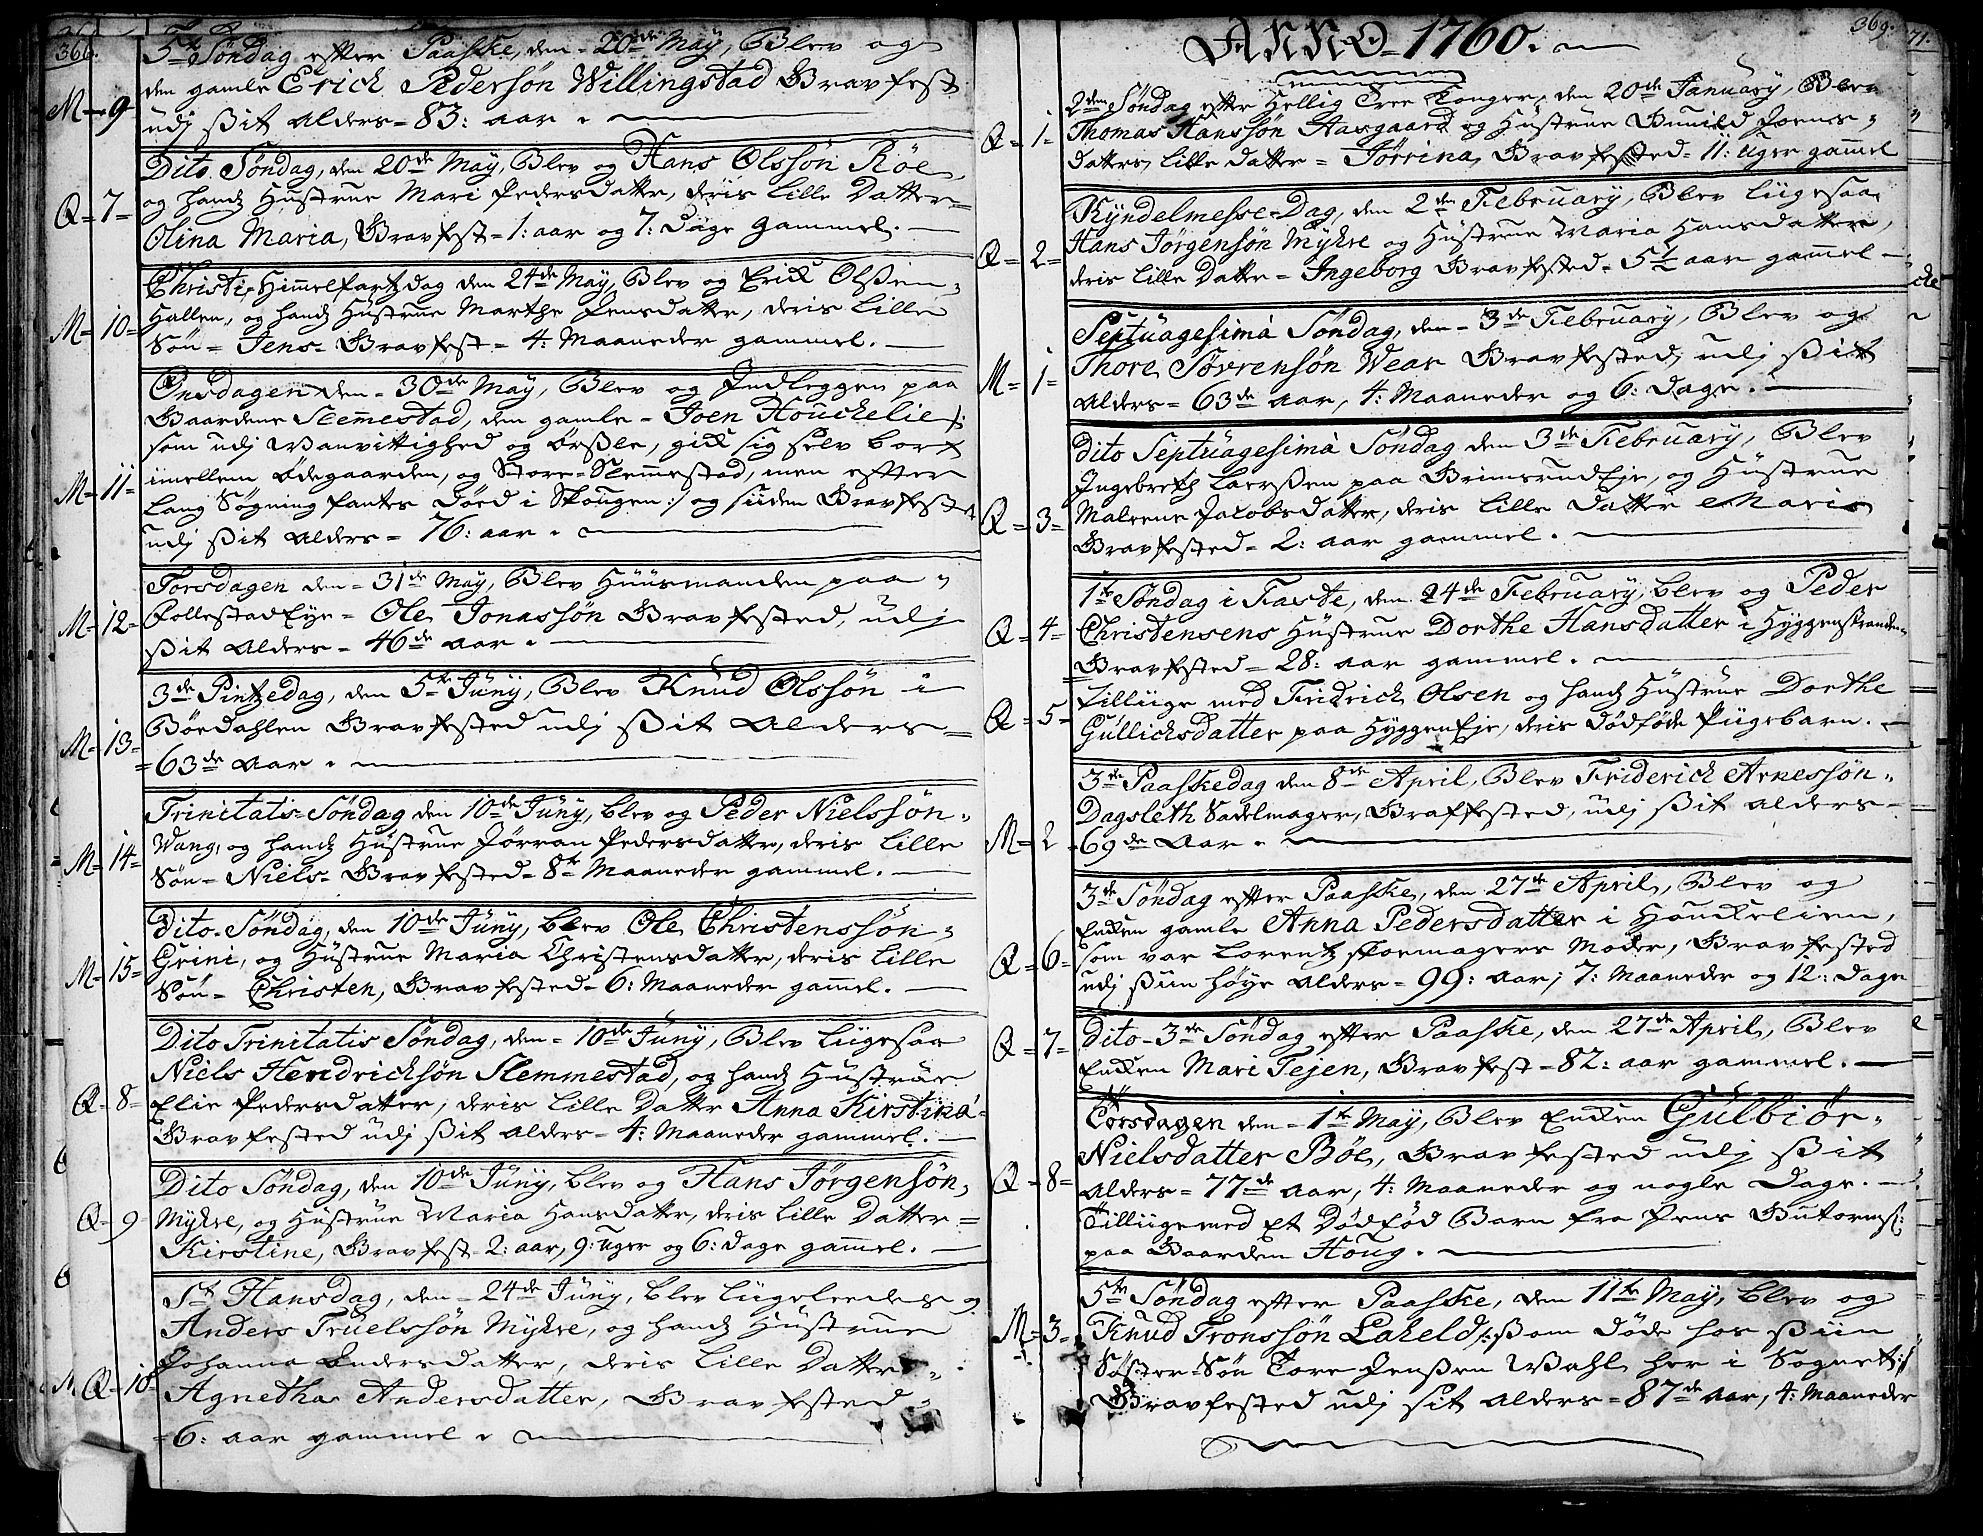 366.
5te Søndag efter Paaske, den 20de May, Blev og
den gamle Erick Pedersøn Willingstad Gravfest
M 9 udj ßit Alders = 83: aar.
Dito Søndag, den 20de May, Blev og Hans Olssøn Röe
og hands Hustrue Mari Pedersdatter, deris Lille Datter
Q = 7 = Olina Maria, Gravfest = 1: aar og 7: Dage gammel.
Christi Himmelfartz dag den 24de May, Blev og Erick Olßen
Hallen, og hands Hustrue Marthe Jensdatter, deris Lille
M = 10 = Søn = Jens = Gravfest = 4: Maaneder gammel.
Onsdagen den = 30de May, Blev og Indleggen paa
Gaardene Slemmestad, den gamle = Joen Houckelie /:
som udj Vanvittighed og Ørßle, gick sig selv bort
M = 11 = imellem Ødegaarden, og Store = Slemmestad, men efter
Lang Søgning fantes Død i Skougen :/ og siiden Gravfest
udj ßit Alders = 76: aar.
Torsdagen den = 31te May, Blev Huusmanden paa
M = 12 = Follestad Eye = Ole Jonassøn Gravfested, udj
ßit Alders = 46de aar.
3de Pintzedag, den 5te Juny, Blev Knud Olssøn i
M = 13 = Böedahlen Gravfested udj ßit Alders =
= 63de Aar.
Trinitatis = Søndag den 10de Juny, blev og Peder Nielssøn
Wang, og hands Hustrue Jörran Pedersdatter, deris Lille
M = 14 = Søn = Niels = Gravfested = 8te Maaneder gammel.
Dito Søndag, den 10de Juny, blev Ole Christenssøn
M = 15 = Grini, og Hustrue Maria Christensdatter, deris Lille
Søn = Christen, Gravfested = 6: Maaneder gammel.
Dito Trinitatis Søndag, den = 10de Juny, Blev Liigesaa
Niels Hendricksøn Slemmestad, og hands Hustrüe
Q = 8 = Elie Pedersdatter, deris Lille Datter Anna Kirstina
Gravfested udj ßit Alders = 4: Maaneder gammel.
Dito Søndag, den 10de Juny, blev og Hans Jørgensøn
Q = 9 Mykre, og Hustrue Maria Hansdatter, deris Lille Datter =
Kirstine, Gravfest 2: aar, 9: Uger og 6: dage gammel.
St Hansdag, den = 24de Juny, blev Liigeleedes og
Anders Truelssøn Mykre, og hands Hustrue
Johanna Andersdatter, deris Lille Datter
Q = 10 Agnetha Andersdatter, Gravfested
= 6: aar gammel.
369.
ANNO = 1760.
2den Søndag efter Hellig Tree Konger, den 20de January, Blev
Q = 1 = Thomas Hanssøn Aasgaard og Hustrue Gunild Joens
datters Lille datter = Jörrina, Gravfested = 11: Uger gammel
Kyndelmesse = Dag, den 2den February, Blev Liigesaa
Q = 2 = Hans Jørgensøn Mykre og Hustrue Maria Hansdatter,
deris Lille Datter = Ingeborg Gravfested = 5½ aar gammel
Septuagesima Søndag, den = 3de February, Blev og
M = 1 = Thore Sövrensøn Wear Gravfested, udj ßit
Alders = 63de aar, 4: Maaneder og 6: Dage.
Dito Septuagesima Søndag den 3de February, Blev
Ingebreth Larßen paa Grimsrud Eje, og Hustrue
Q = 3 = Maleene Jacobsdatter, deris Lille Datter Maria
Gravfested = 2: aar gammel.
1te Søndag i Faste, den 24de February, blev og Peder
Q = 4 = Christensens Hustrue Dorthe Hansdatter i Hyggenstranden
Gravfested = 28: aar gammel.
Q = 5 = Tilliige med Fridrich Olsen og hands Hustrue Dorthe
Gullichsdatter paa Hyggen Eje, deris dødføde Piigebarn.
3de Paaskedag den 8de April, Blev Friderich Arnessøn
Dagsleth Sadelmager, Graffested, udj ßit Alders
M = 2 = 69de Aar.
3de Søndag efter Paaske, den 27de April, Blev og
Encken gamle Anna Pedersdatter i Houckelien,
Q = 6 = som var Lorentz Skomagers Moder, Gravfested
udj ßiin høye Alders = 99: aar; 7: Maaneder og 12: Dage
Q = 7 = Dito = 3de Søndag efter Paaske, den 27de April, Blev
Encken Mari Tejen, Gravfest = 82: aar gammel.
Torsdagen den = 1te May, Blev Encken Gulbiør
Nielsdatter Böe, Gravfested udj ßit
Q = 8 = Alders = 77de aar, 4: Maaneder og nogle Dage.
Tilliigemed et Dødfød Barn fra Jens Gutormß:
paa Gaarden Houg.
5te Søndag efter Paaske, den 11te May, blev og
M = 3 = Knud Tronssøn Lakeld /: ßom døde hos ßiin
Søster = Søn Tore Jenßen Wahl her i Sognet :/
Gravfested udj sit Alders = 87de aar, 4: Maaneder